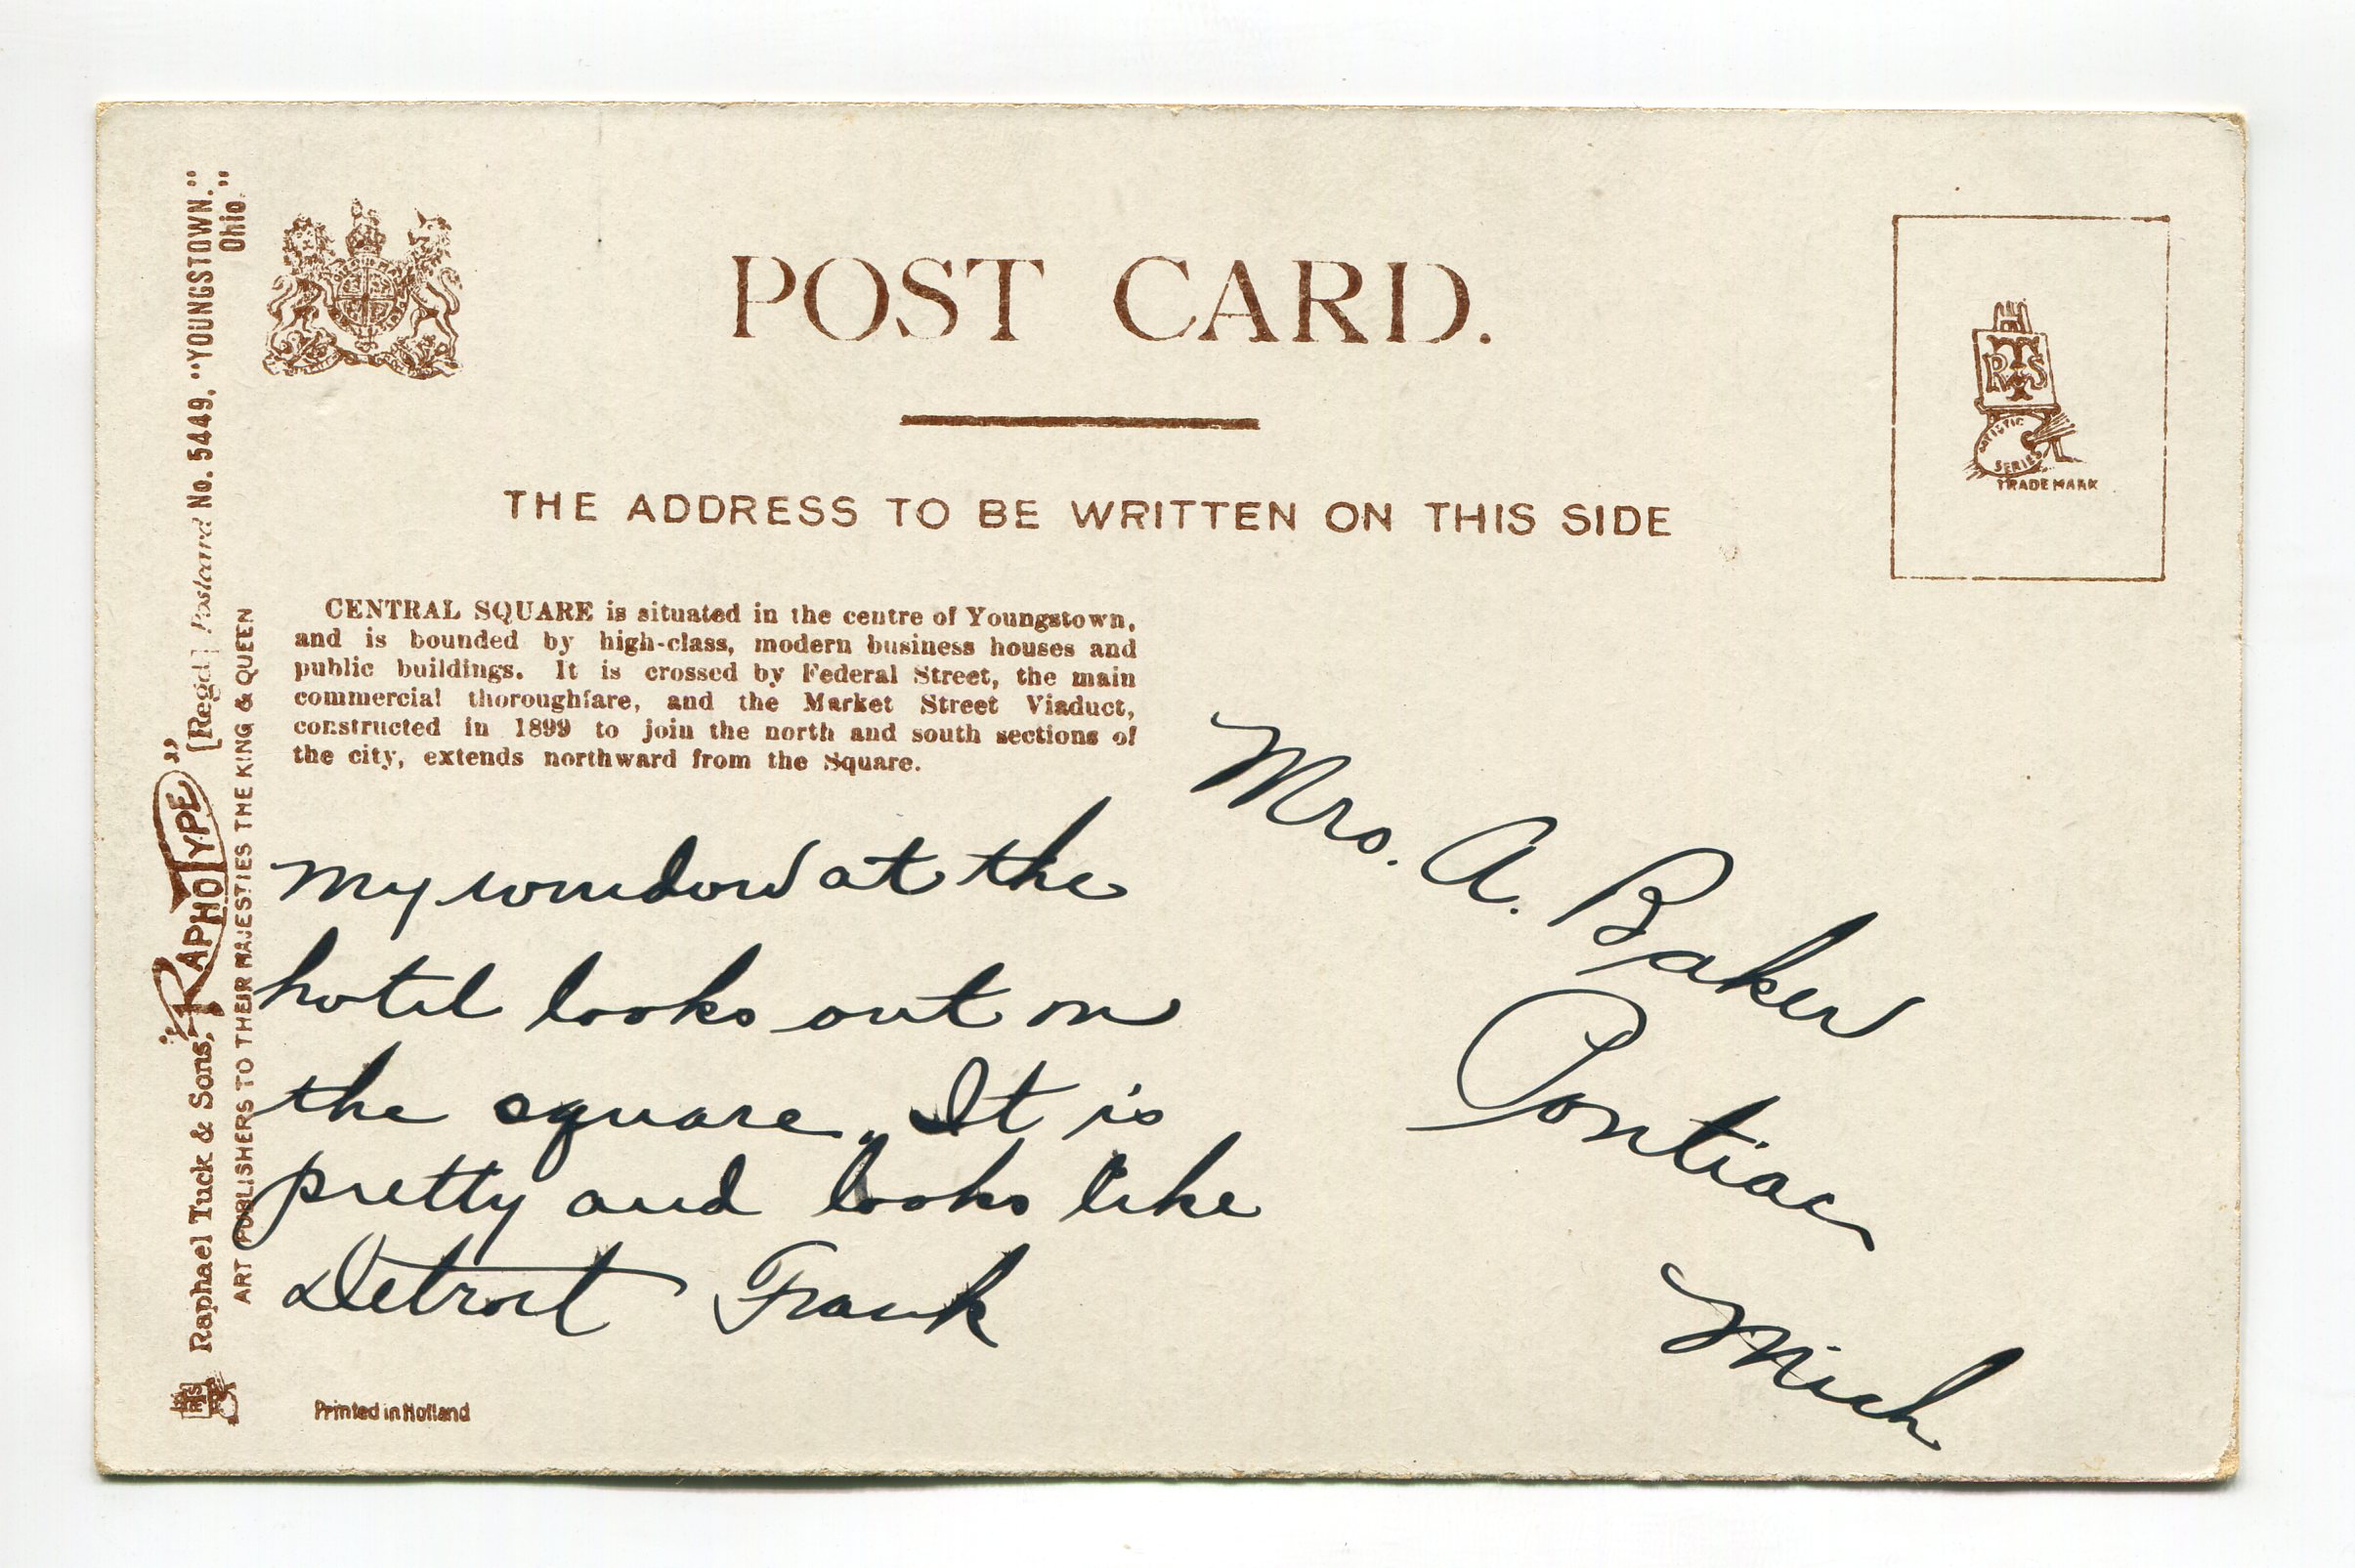 POST CARD.
THE ADDRESS TO BE WRITTEN ON THIS SIDE
R & T S
ARTISTIC
SERIES
TRADE MARK
CENTRAL SQUARE is situated in the centre of Youngstown,
and is bounded by high-class, modern business houses and
public buildings. It is crossed by Federal Street, the main
commercial thoroughfare, and the Market Street Viaduct,
constructed in 1899 to join the north and south sections of
the city, extends northward from the Square.
My window at the
hotel looks out on
the square. It is
pretty and looks like
Detroit Frank
Mrs. A. Baker
Pontiac
Mich
Raphael Tuck & Sons' "RAPHOTYPE" [Regd.] Postcard No. 5449. "YOUNGSTOWN."
Ohio."
ART PUBLISHERS TO THEIR MAJESTIES THE KING & QUEEN
Printed in Holland